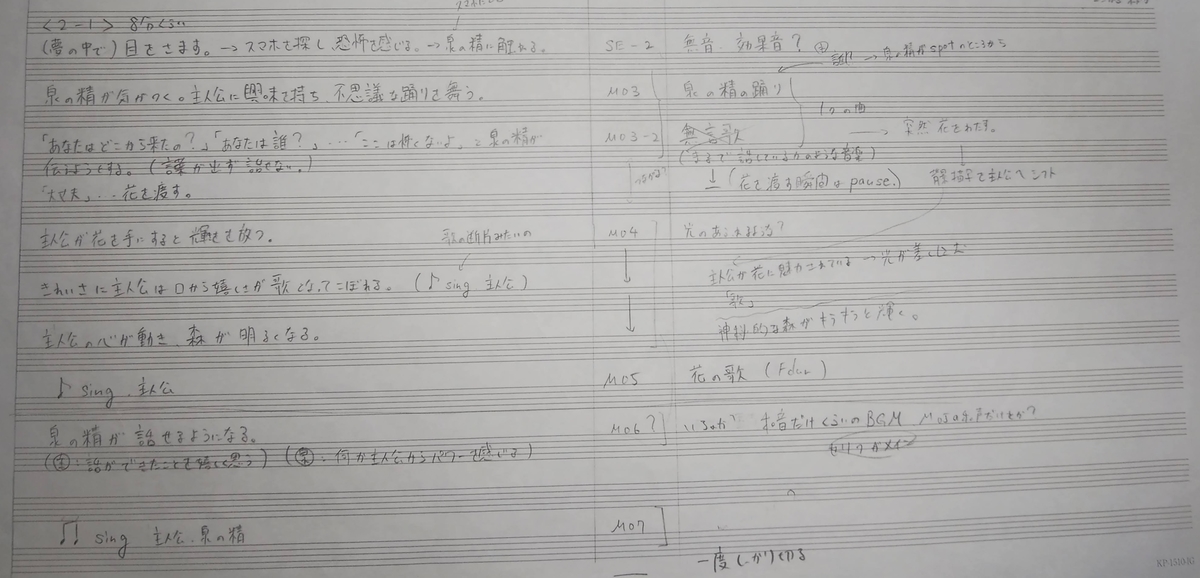 <2-1> 8分くらい
(夢の中で)目をさます。→スマホを探し恐怖を感じる。→泉の精に触れる。 SE-2 無音、効果音?
泉の精がspotのところから
泉の精が気がつく。主人公に興味を持ち、不思議な踊りを舞う。 M03 泉の精の踊り
1つの曲
「あなたはどこから来たの?」「あなたは誰?」...「ここは怖くないよ」と泉の精が M03-2 無言歌 → 突然花をわたす。
伝えようとする。(言葉が出ず話せない。) (まるで話しているかのような音楽)
「大丈夫」...花を渡す。 ↓(花を渡す瞬間はpause.) 主人公へシフト
主人公が花を手にすると輝きを放つ。 歌の断片みたいの M04 光のあふれる
きれいさに主人公は口から嬉しさが歌となってこぼれる。(♪ sing 主人公) 主人公が花に魅力されている→光が差し込む
「歌」
主人公の心が動き、森が明るくなる。 神秘的な森がキラキラと輝く。
♪ sing 主人公 M05 花の歌 (Fdur)
泉の精が話せるようになる。 M06? いるのか? 和音だけくらいのBGM
(主:話ができたことを嬉しく思う) (泉:何か主人公からパワーを感じる) セリフがメイン
♫ sing 主人公、泉の精 M07
一度しっかり終わる
KP-1510-10